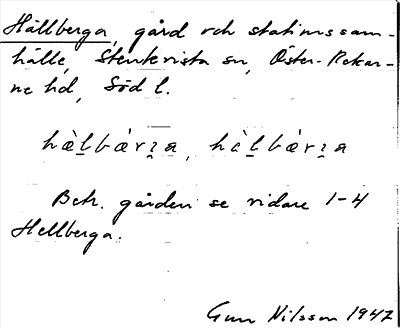 Hällberga, gård och stationssam-
hälle, Stenkvista sn, Öster-Rekar-
ne hd, Söd l.
hàl̠bár̥ʒa, hàl̠bár̥ʒa
Betr. gården se vidare 1-4
Hellberga.
Gun Nilsson 1947